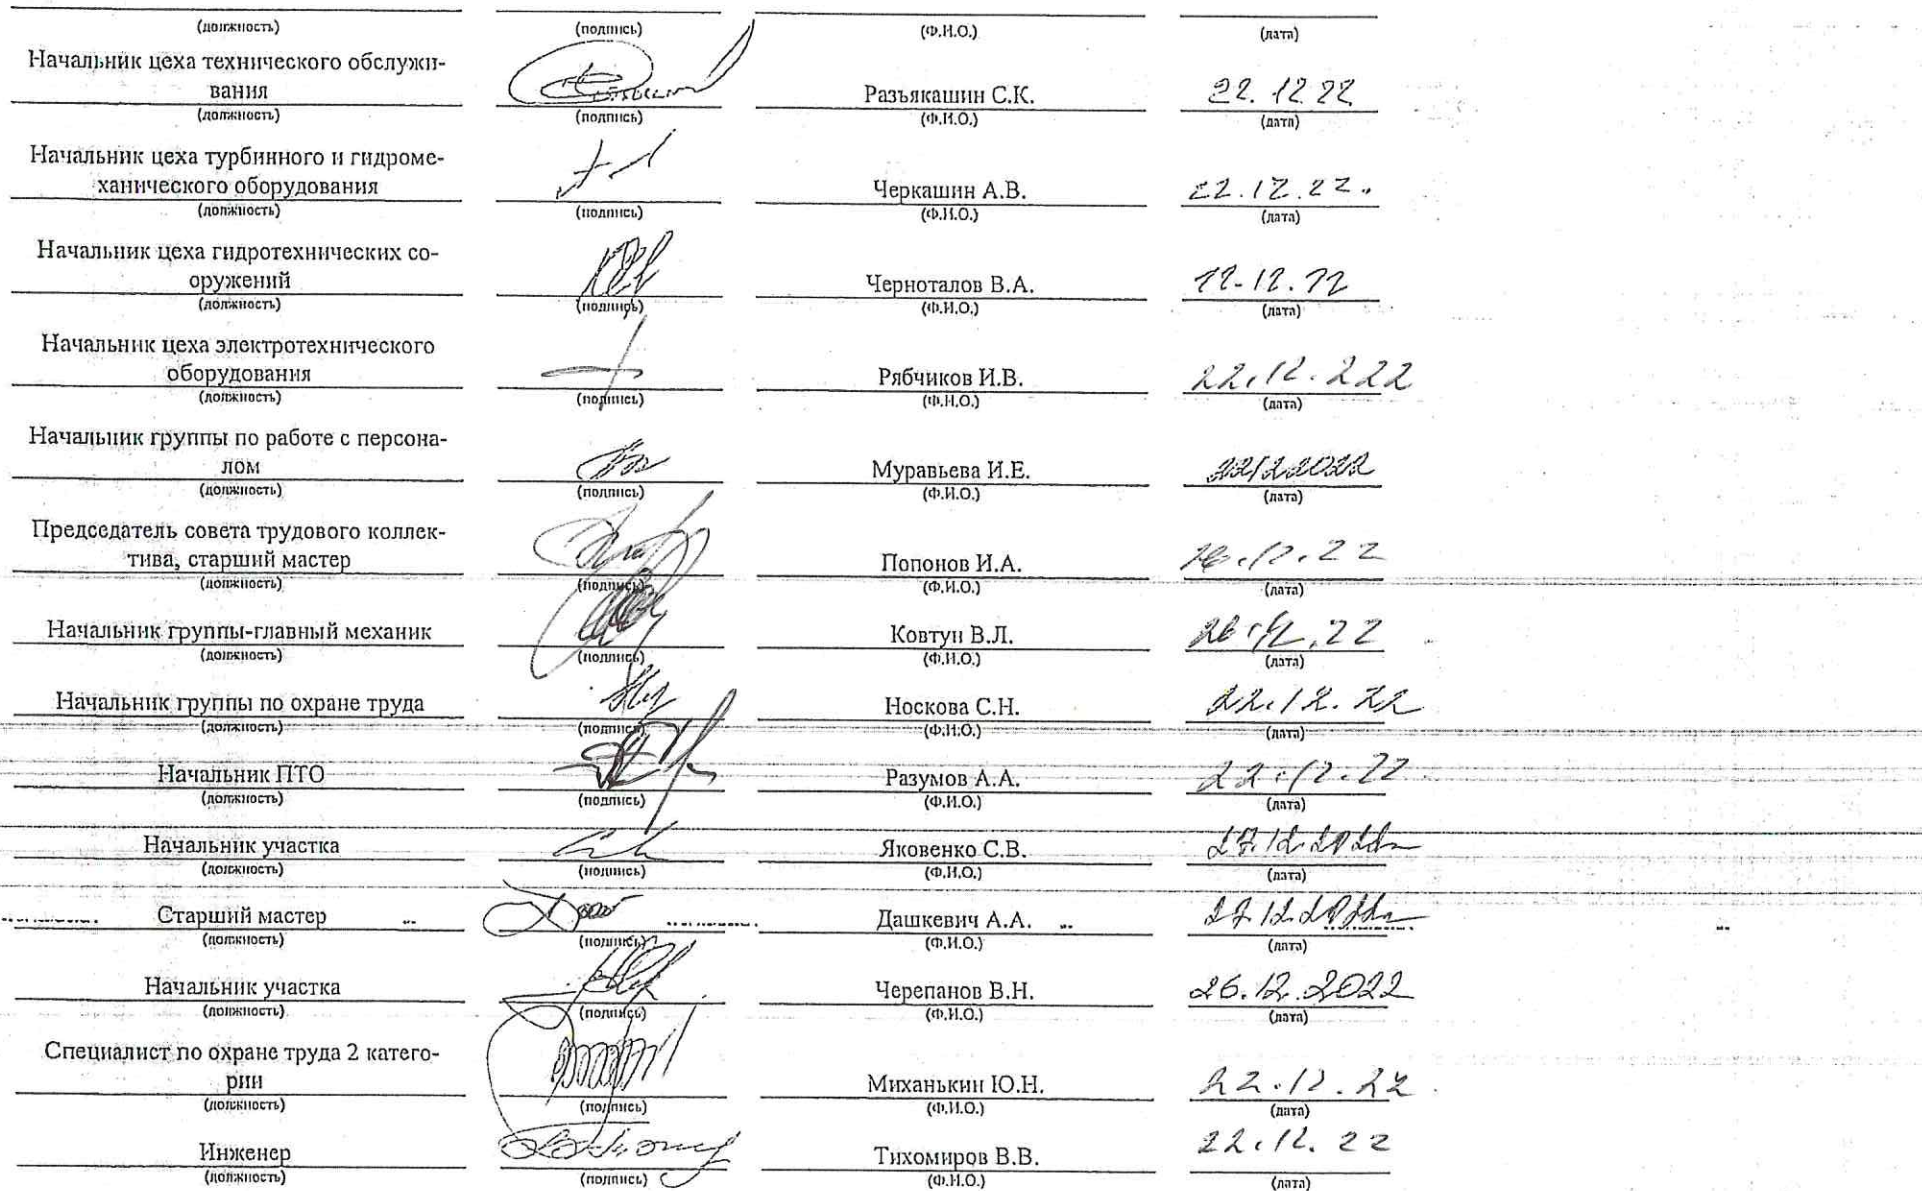 (должность) (подпись) (Ф.И.О.) (дата)
Начальник цеха технического обслужи-
вания Разъякашин С.К. 22.12.22
(должность) (подпись) (Ф.И.О.) (дата)
Начальник цеха турбинного и гидроме-
ханического оборудования Черкашин А.В. 22.12.22.
(должность) (подпись) (Ф.И.О.) (дата)
Начальник цеха гидротехнических со-
оружений Черноталов В.А.
(должность) (подпись) (Ф.И.О.) (дата)
Начальник цеха электротехнического
оборудования Рябчиков И.В. 22.12.222
(должность) (подпись) (Ф.И.О.) (дата)
Начальник группы по работе с персона-
лом Муравьева И.Е. 22122022
(должность) (подпись) (Ф.И.О.) (дата)
Председатель совета трудового коллек-
тива, старший мастер Попонов И.А. 26.12.22
(должность) (подпись) (Ф.И.О.) (дата)
Начальник группы-главный механик Ковтун В.Л. 26.12.22
(должность) (подпись) (Ф.И.О.) (дата)
Начальник группы по охране труда Носкова С.Н. 22.12.22
(должность) (подпись) (Ф.И.О.) (дата)
Начальник ПТО Разумов А.А. 22.12.22
(должность) (подпись) (Ф.И.О.) (дата)
Начальник участка Яковенко С.В. 27.12.2022
(должность) (подпись) (Ф.И.О.) (дата)
Старший мастер Дашкевич А.А. 27.12.2022
(должность) (подпись) (Ф.И.О.) (дата)
Начальник участка Черепанов В.Н. 26.12.2022
(должность) (подпись) (Ф.И.О.) (дата)
Специалист по охране труда 2 катего-
рии Миханькин Ю.Н. 22.12.22
(должность) (подпись) (Ф.И.О.) (дата)
Инженер Тихомиров В.В. 22.12.22
(должность) (подпись) (Ф.И.О.) (дата)